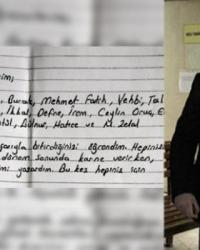 im,
, Burak, Mehmet Fatih, Vehbi, Tal
, İkbal, Defne, İrem, Ceylin Oruç, E
Gülnur, Hatice ve M. Zelal
şarıyla bitirdiğinizi öğrendim. Hepinizi
dönem sonunda karne verirken,
mı yazardım. Bu kes hepiniz için